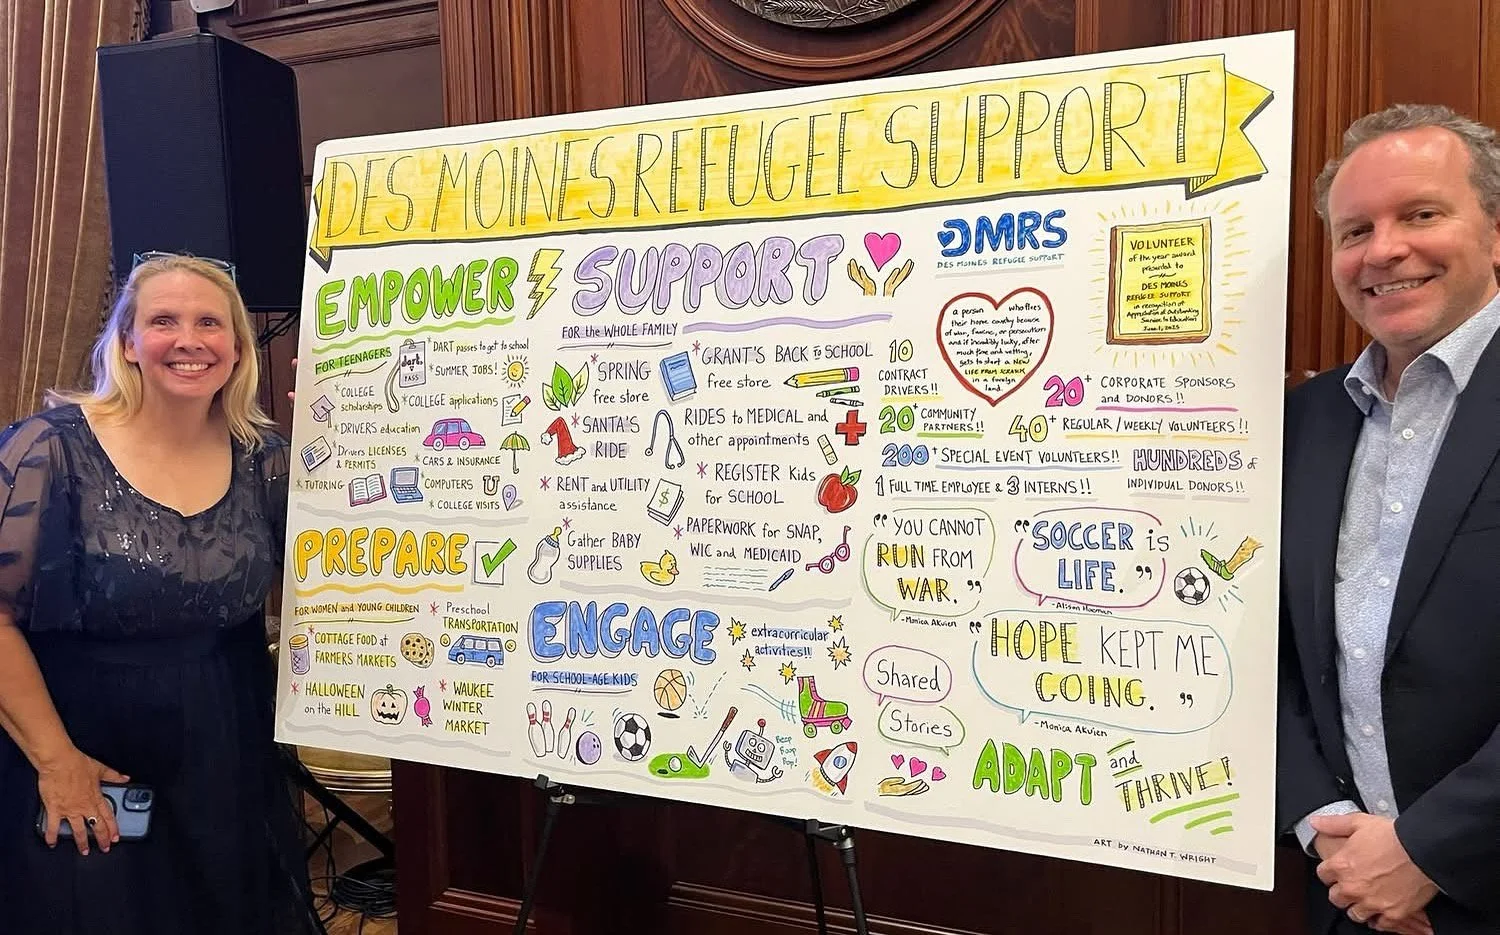 DES MOINES REFUGEE SUPPORT
EMPOWER
FOR TEENAGERS
dart.
PASS
*DART passes to get to school
*SUMMER JOBS!
*COLLEGE
scholarships
*COLLEGE applications
*DRIVERS education
*Drivers LICENSES
& PERMITS
*CARS & INSURANCE
*TUTORING
*COMPUTERS
U
*COLLEGE VISITS
PREPARE
FOR WOMEN and YOUNG CHILDREN
*COTTAGE FOOD at
FARMERS MARKETS
* Preschool
TRANSPORTATION
*HALLOWEEN
on the HILL
* WAUKEE
WINTER
MARKET
SUPPORT
FOR the WHOLE FAMILY
*SPRING
free store
*GRANT'S BACK to SCHOOL
free store
*SANTA'S
RIDE
RIDES to MEDICAL and
other appointments
* RENT and UTILITY
assistance
$
* REGISTER Kids
for SCHOOL
*
Gather BABY
SUPPLIES
*PAPERWORK for SNAP,
WIC and MEDICAID
ENGAGE
FOR SCHOOL-AGE KIDS
extracurricular
activities!!
Beep
Boop
Bop!
DMRS
DES MOINES REFUGEE SUPPORT
a person who flees
their home country because
of war, famine, or persecution
and if incredibly lucky, after
much time and vetting,
gets to start a NEW
LIFE FROM SCRATCH
in a foreign
land.
VOLUNTEER
of the year award
presented to
DES MOINES
REFUGEE SUPPORT
in recognition of
Appreciation of Outstanding
Service to Education
June 1, 2023
10
CONTRACT
DRIVERS!!
20+ CORPORATE SPONSORS
and DONORS!!
20+ COMMUNITY
PARTNERS!!
40+ REGULAR / WEEKLY VOLUNTEERS!!
200+ SPECIAL EVENT VOLUNTEERS!!
HUNDREDS of
INDIVIDUAL DONORS!!
1 FULL TIME EMPLOYEE & 3 INTERNS!!
"YOU CANNOT
RUN FROM
WAR."
-Monica Akuien
"SOCCER is
LIFE."
-Alison Hoeman
"HOPE KEPT ME
GOING."
-Monica Akuien
Shared
Stories
ADAPT and
THRIVE!
ART by NATHAN T. WRIGHT